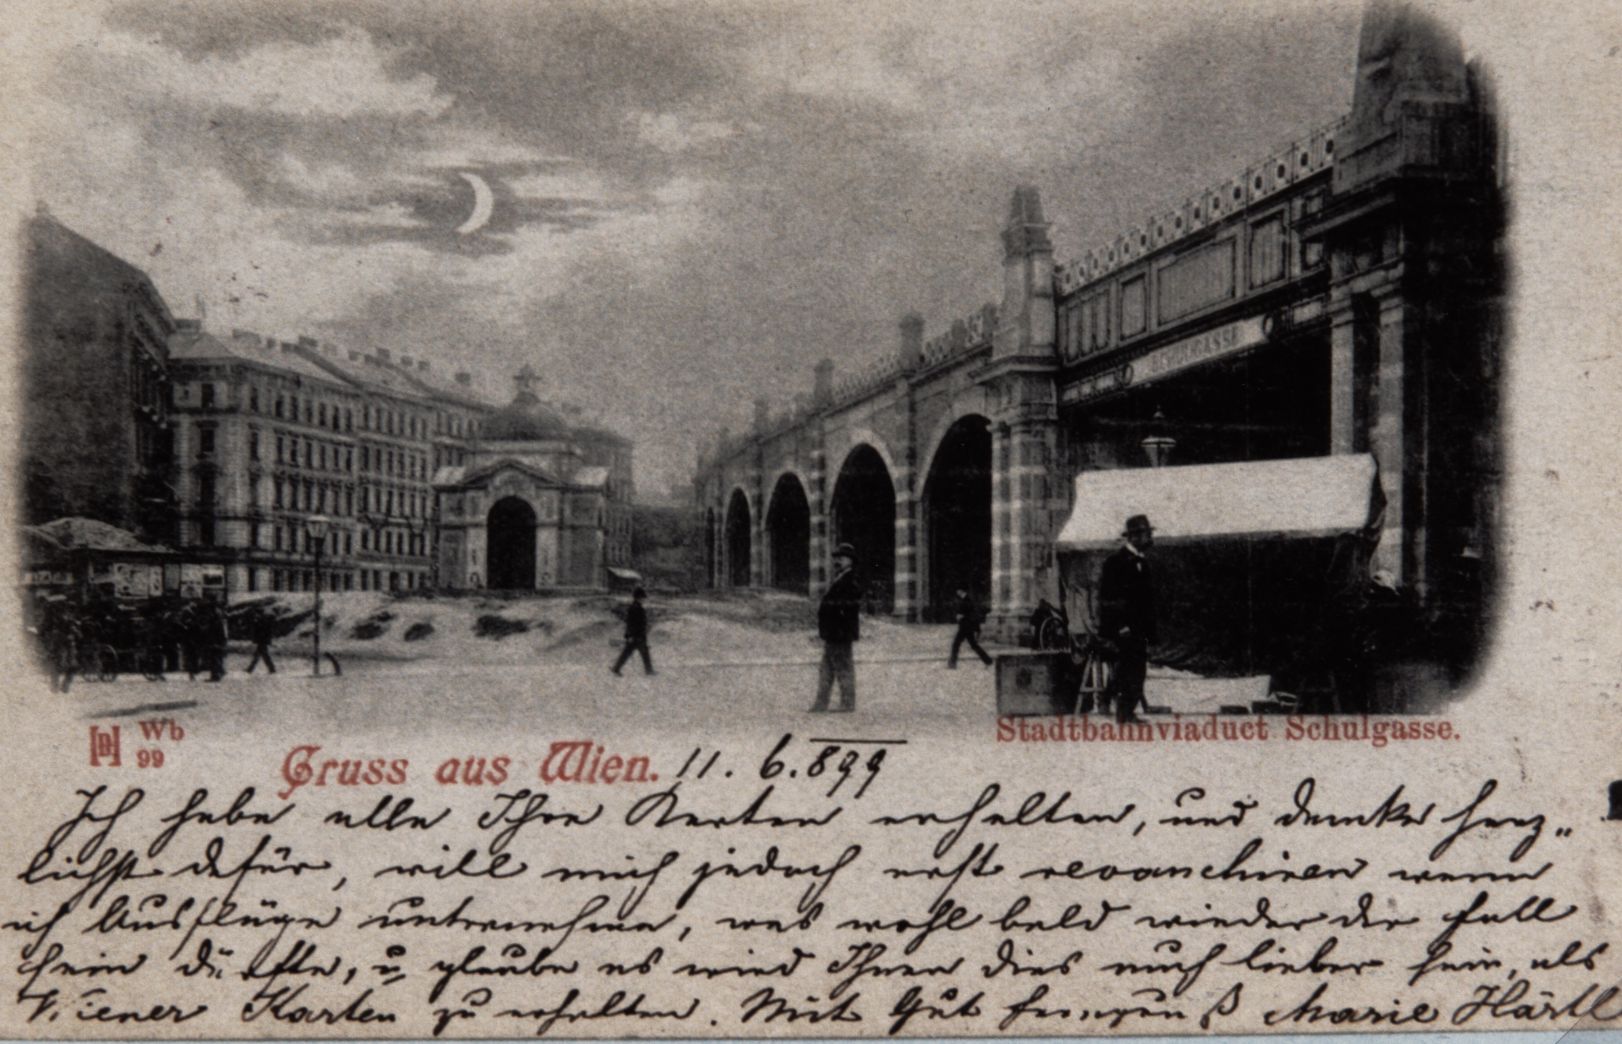 SCHULGASSE
Wb
99
Stadtbahnviaduct Schulgasse.
Gruss aus Wien. 11. 6. 899
Ich habe alle Ihre Karten erhalten, und danke herz„
lichst dafür, will mich jedoch erst revanchiren wenn
ich Ausflüge unternehme, was wohl bald wieder der Fall
sein dürfte, u glaube es wird Ihnen dies auch lieber sein, als
Wiener Karten zu erhalten. Mit Gut Marie Härtl